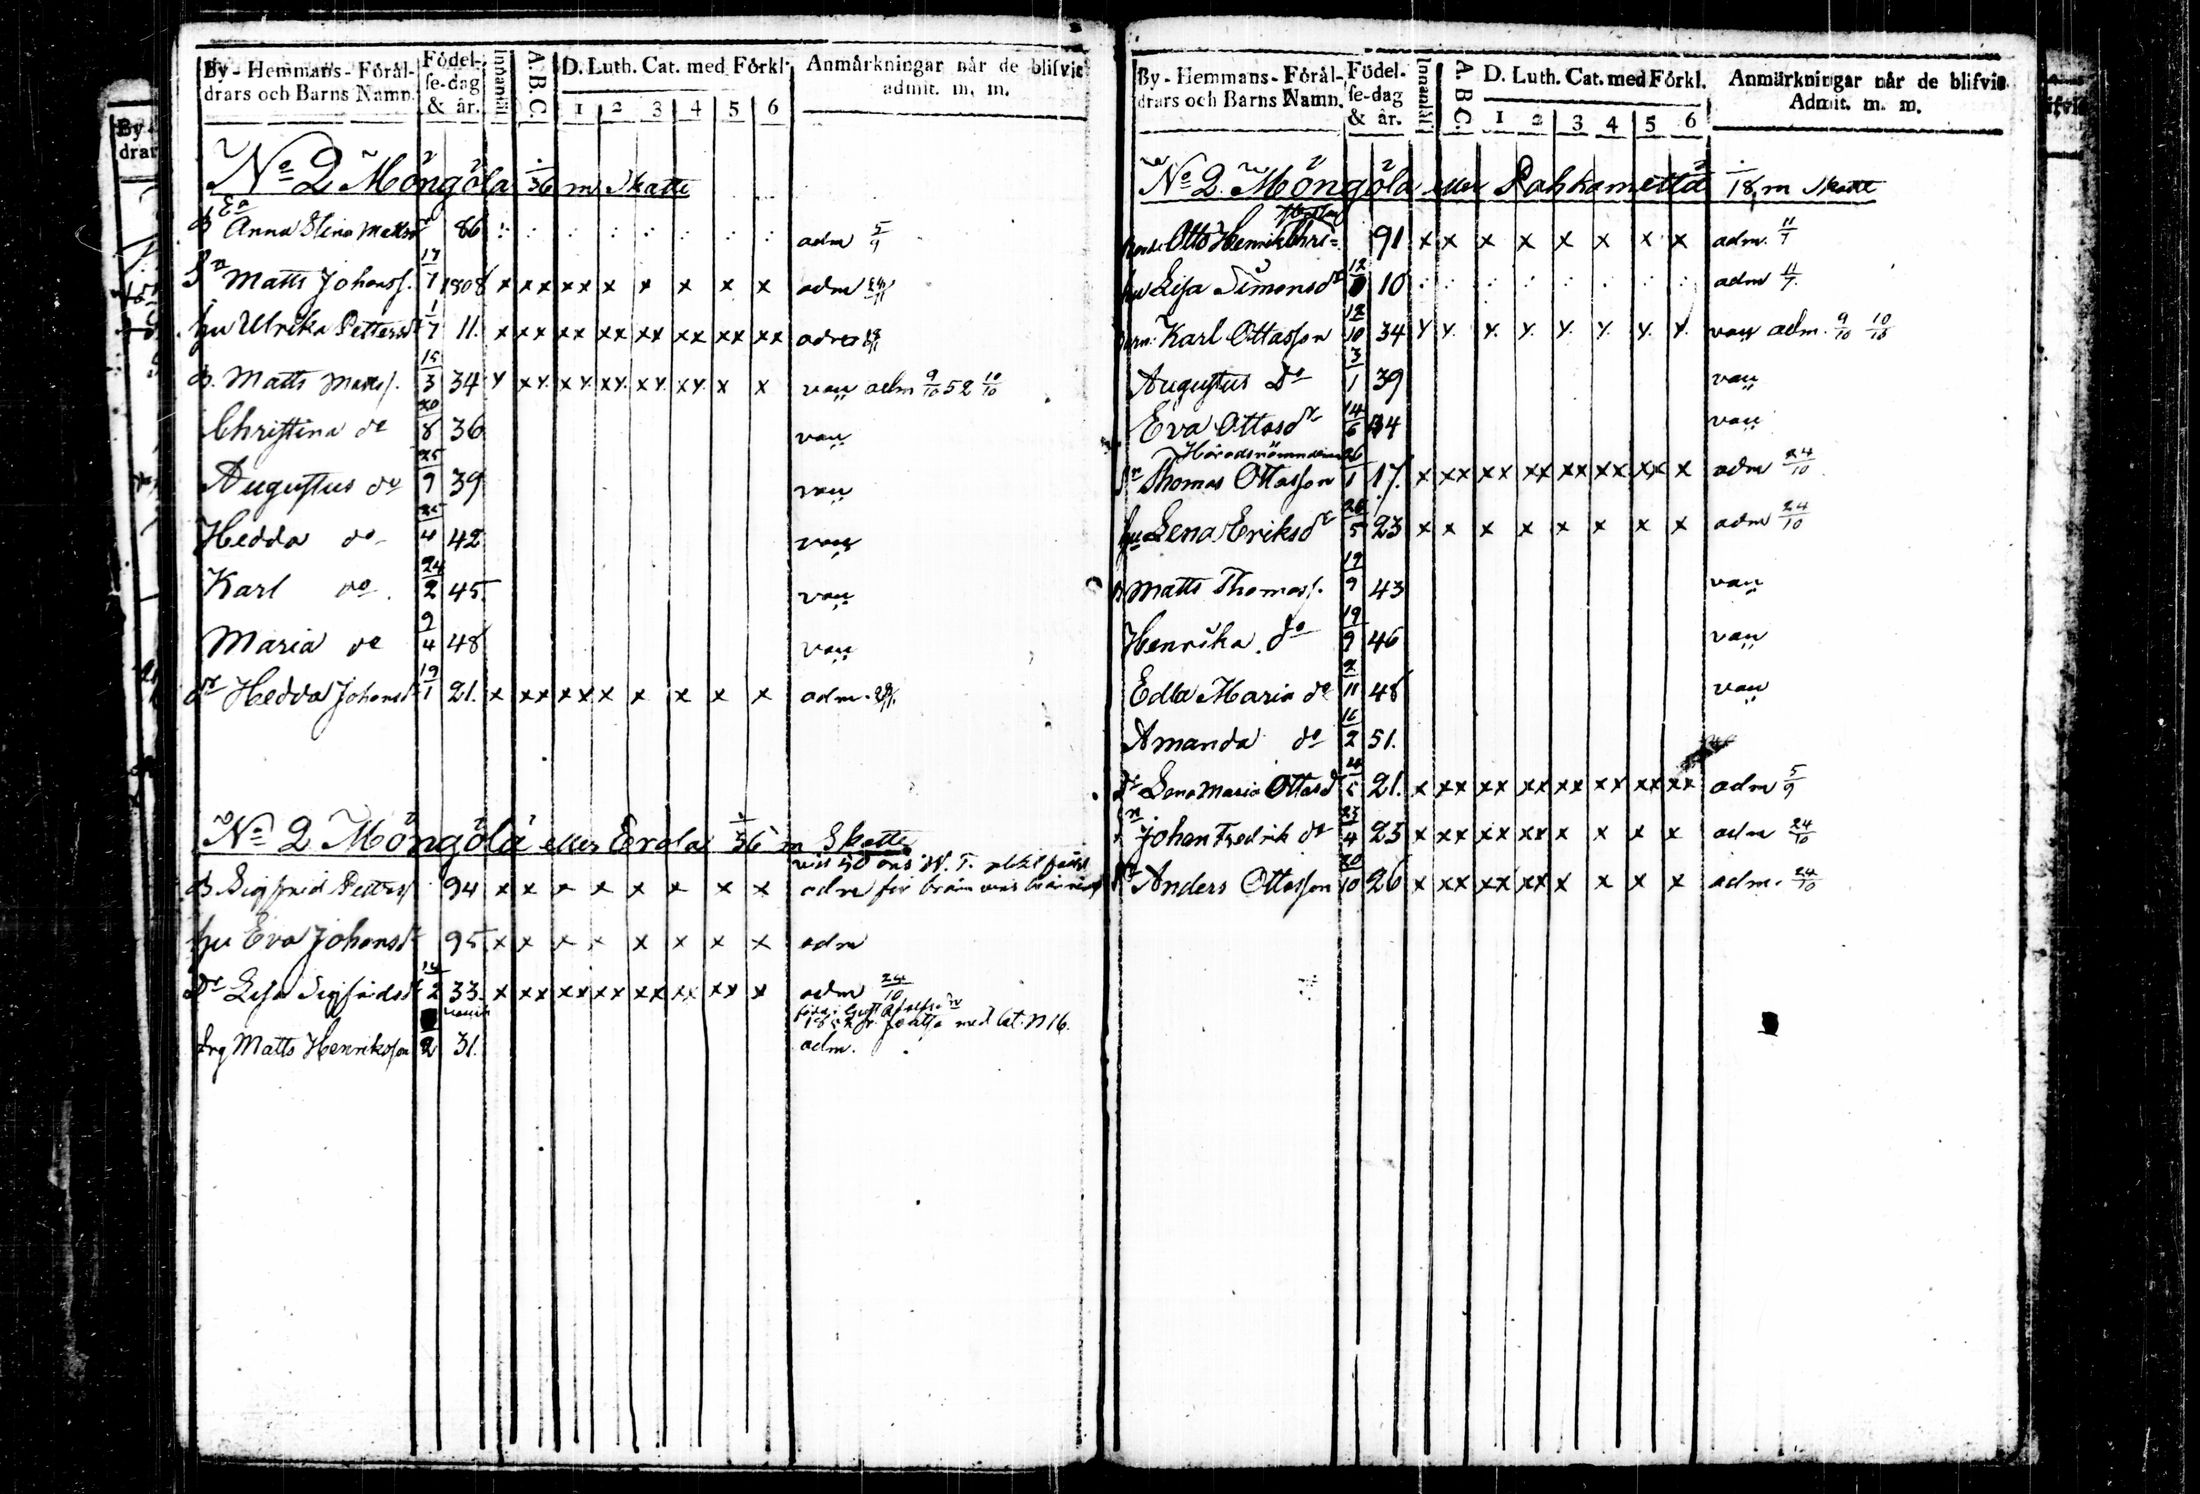 By - Hemmans - Föräl-
drars och Barns Namn.
Födel-
se-dag
& år.
Innanläs
A.B.C.
D. Luth. Cat. med Förkl.
1 2 3 4 5 6
Anmärkningar når de blifvit
admit. m. m.
No 2 Möngölä 1/36 m Skatt
Ea
B Anna Stina Mattsdr 86 adm 5/9
Sn Matts Johanss. 17/7 1808 x xx xx x x x x x adm
hu Ulrika Pettersdr 1/7 11. x xx xx xx xx xx xx xx
B. Matts Matts s. 15/3 34 y xy xy xy xy xy x x vau adm 9/10 52 10/10
Christina do 20/8 36 vau
Augustus do 25/9 39 vau
Hedda do 25/4 42 vau
Karl do 24/2 45 vau
Maria do 9/4 48 vau
dr Hedda Johansdr 19/1 21. x xx xx x x x x x adm.
No 2 Möngölä eller Erola 1/36 m Skatt
B Sigfrid Petterss 94 x x x x x x x x adm för
hu Eva Johansdr 95 x x x x x x x x adm
Dr Lisa Sigfridsdr 14/2 33. x xx xx xx xx xx xx x adm 24/10
med Att. N 16.
drg Matts Henriksson 2 31. adm.
By - Hemmans - Föräl-
drars och Barns Namn.
Födel-
se-dag
& år.
Innanläs
A.B.C.
D. Luth. Cat. med Förkl.
1 2 3 4 5 6
Anmärkningar når de blifvit
Admit. m. m.
No 2 Möngölä eller Pahkamettä 1/18 m Skatt
Bonde Otto Henrik Thri= 91 x x x x x x x x adm. 11/7
hu Lisa Simonsdr 12 10 adm 11/7
Barn. Karl Ottasson 12/10 34 y y y y y y y y vau adm. 9/10 10/10
Augustus Do 3/1 39 vau
Eva Ottasdr 14/6 34 vau
Häradsnämndeman
Sn Thomas Ottasson 26/1 17. x xx xx xx xx xx xx x adm 24/10
hu Lena Eriksdr 28/5 23 x x x x x x x x adm 24/10
B Matts Thomass. 19/9 43 vau
Henrika do 19/9 46 vau
Edla Maria do 2/11 48 vau
Amanda do 16/2 51.
Dr Lena Maria Ottasdr 4/5 21. x xx xx xx xx xx xx xx adm 5/9
Sn Johan Fredrik do 23/4 23 x xx xx xx x x x x adm 24/10
Sn Anders Ottasson 20/10 26 x xx xx xx x x x x adm. 24/10